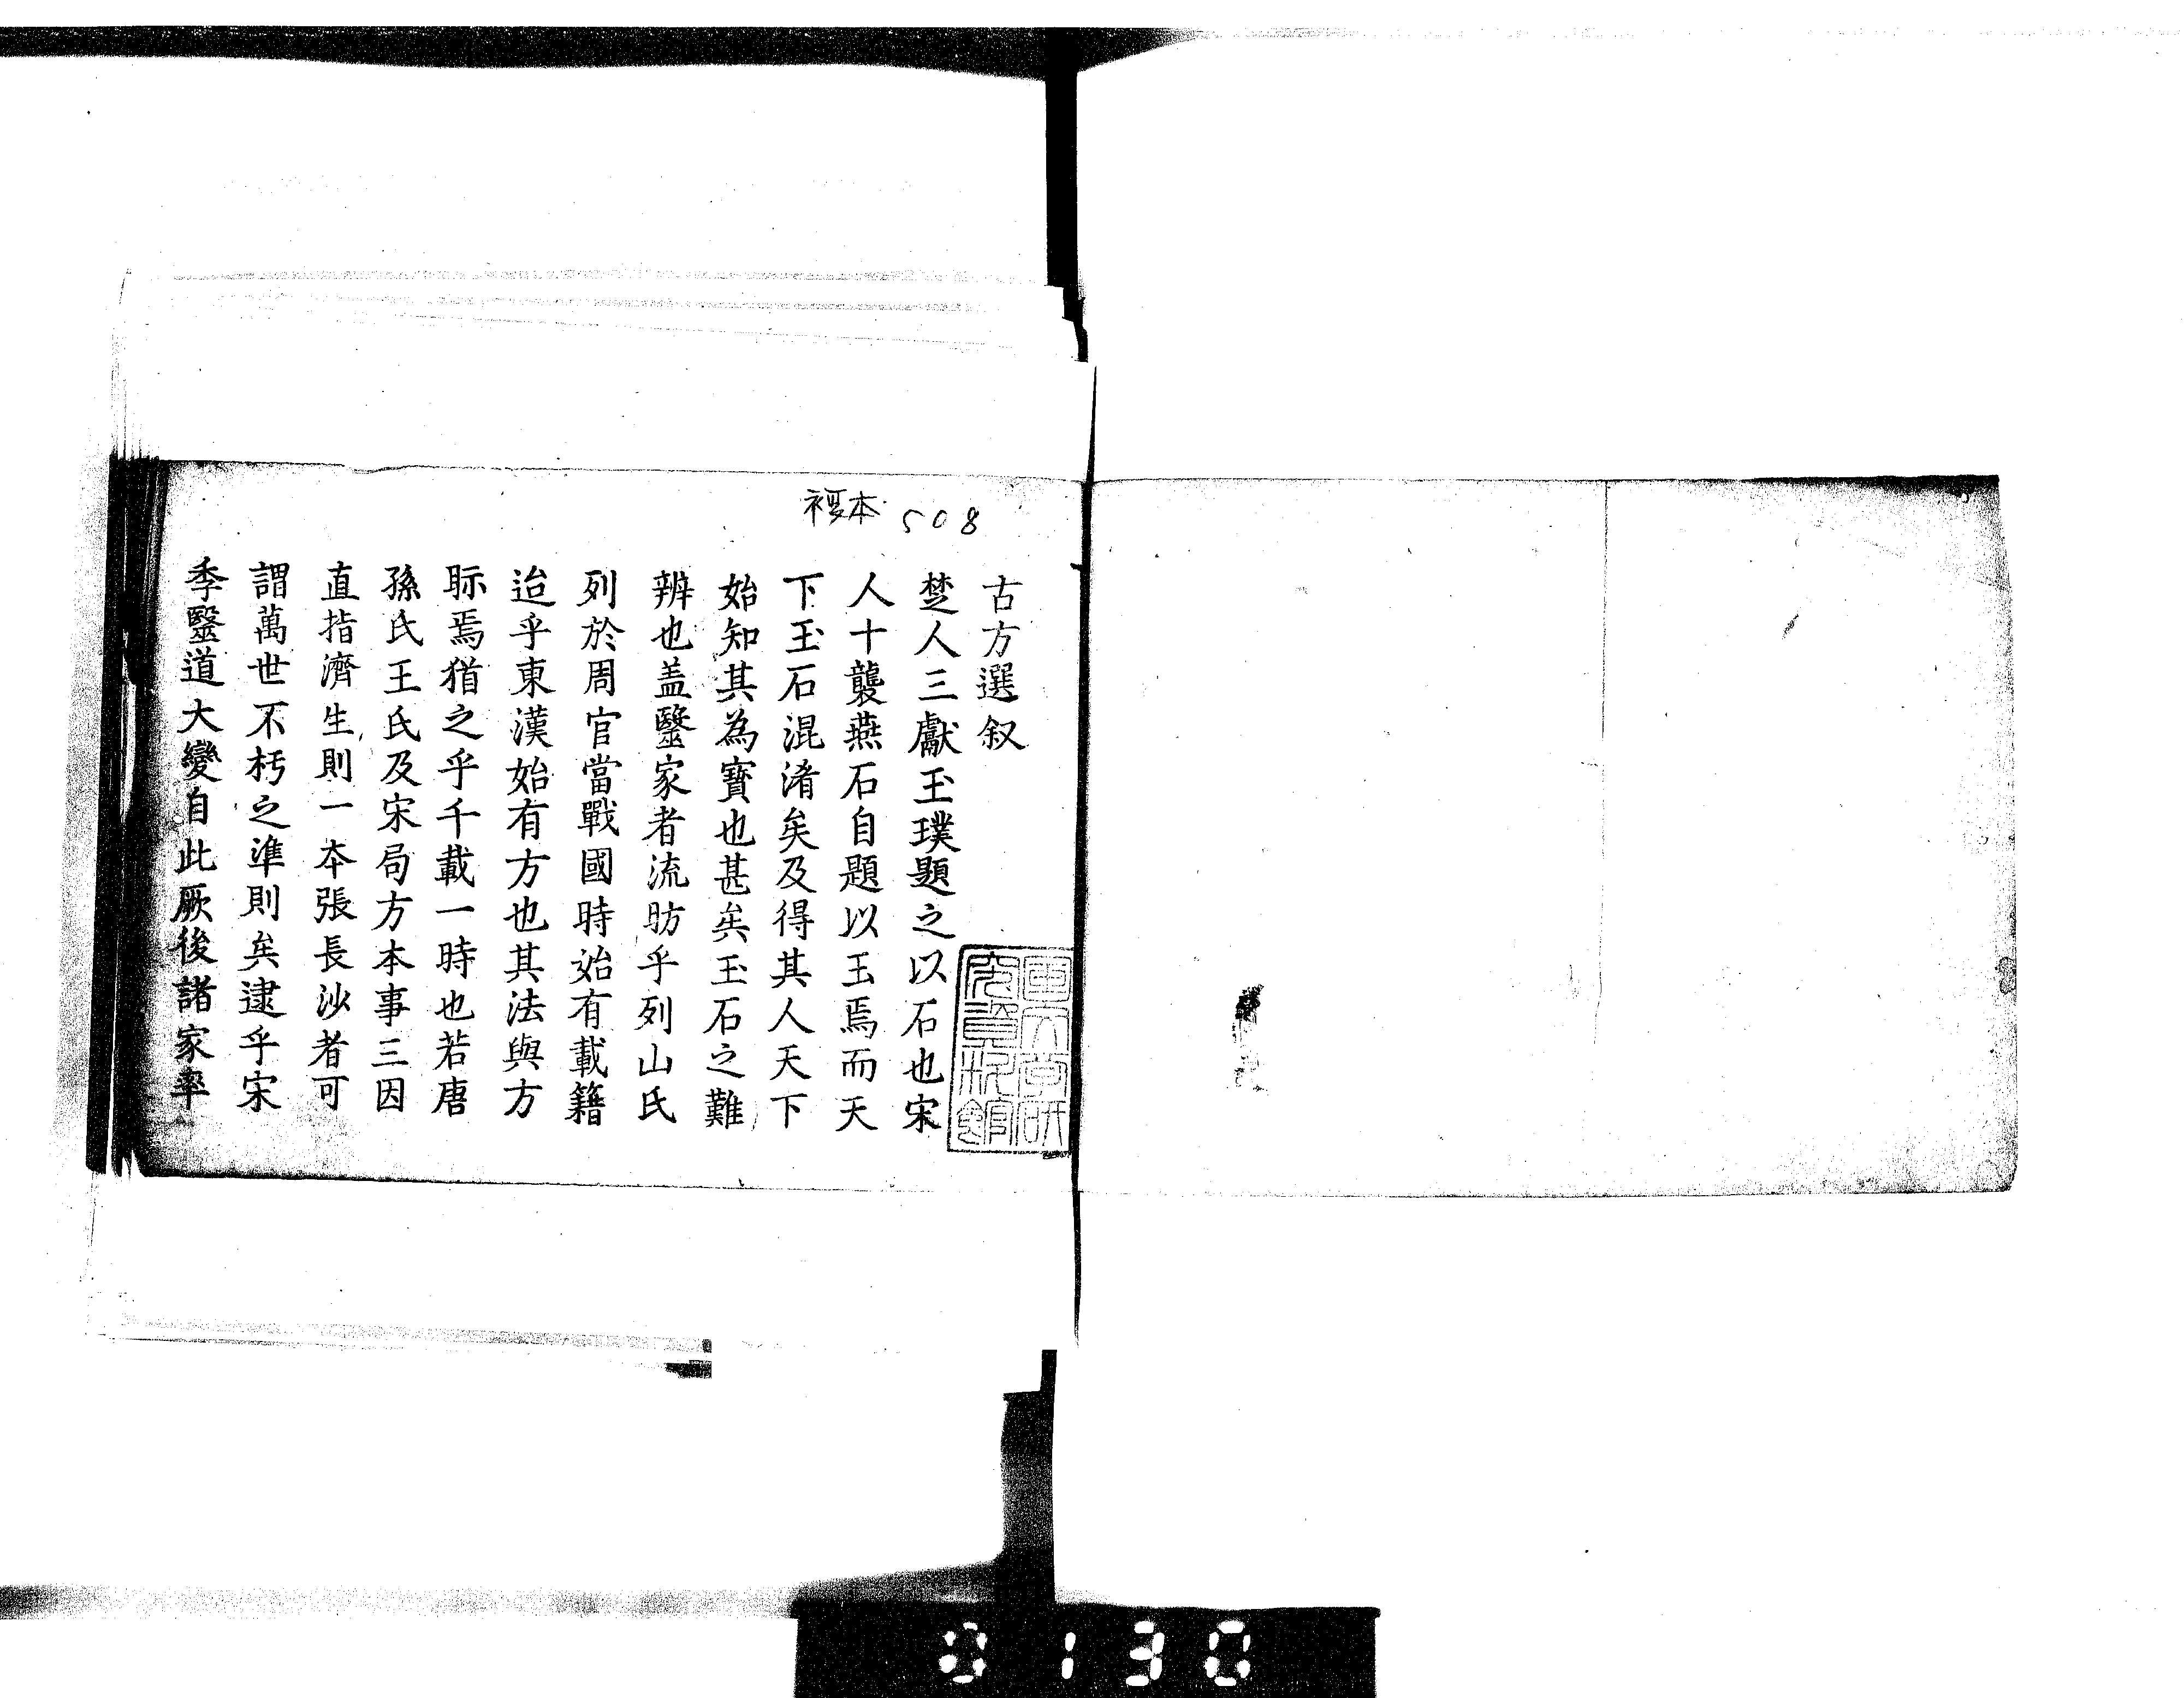 複本 508
古方選叙
楚人三獻玉璞題之以石也宋
人十襲燕石自題以玉焉而天
下玉石混淆矣及得其人天下
始知其為寳也甚矣玉石之難
辨也盖毉家者流昉乎列山氏
列於周官當戰國時始有載籍
迨乎東漢始有方也其法與方
眎焉猶之乎千載一時也若唐
孫氏王氏及宋局方本事三因
直指濟生則一夲張長沙者可
謂萬世不朽之準則矣逮乎宋
季毉道大變自此厥後諸家率
0130